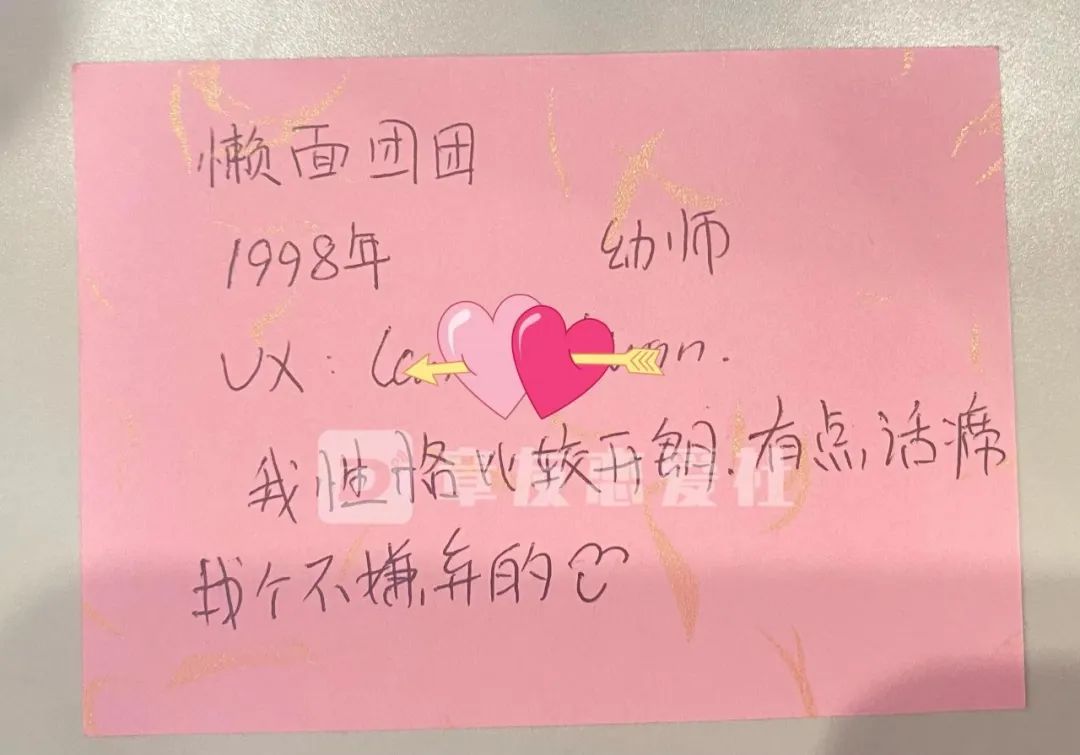 懒面团团
1998年 幼师
VX:
我性格比较开朗.有点话痨
找个不嫌弃的
章友恋爱社